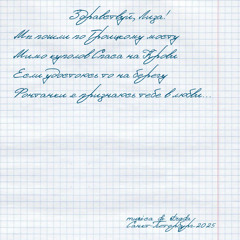 Здравствуй, Лиза!
Мы пошли по Троицкому мосту
Мимо куполов Спаса на Крови
Если удостоюсь то на берегу
Фонтанки я признаюсь тебе в любви...
Санкт-Петербург 2025